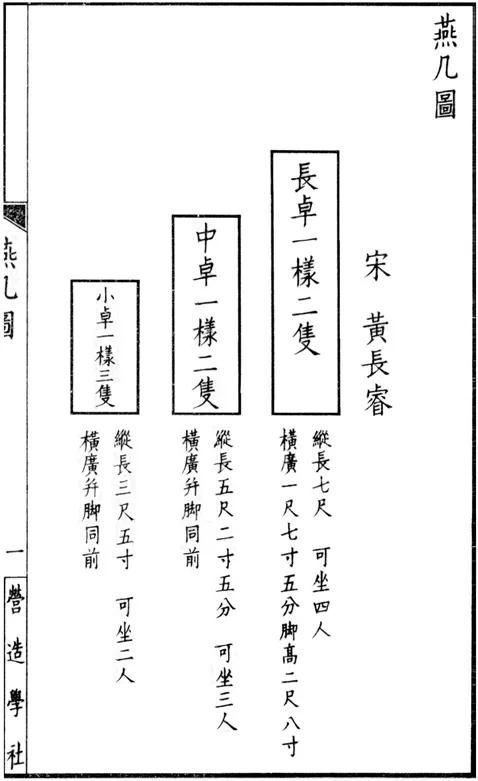 燕几圖
宋 黃長睿
長卓一樣二隻
縱長七尺 可坐四人
橫廣一尺七寸五分脚高二尺八寸
中卓一樣二隻
縱長五尺二寸五分 可坐三人
橫廣幷脚同前
小卓一樣三隻
縱長三尺五寸 可坐二人
橫廣幷脚同前
燕几圖
一
營造學社